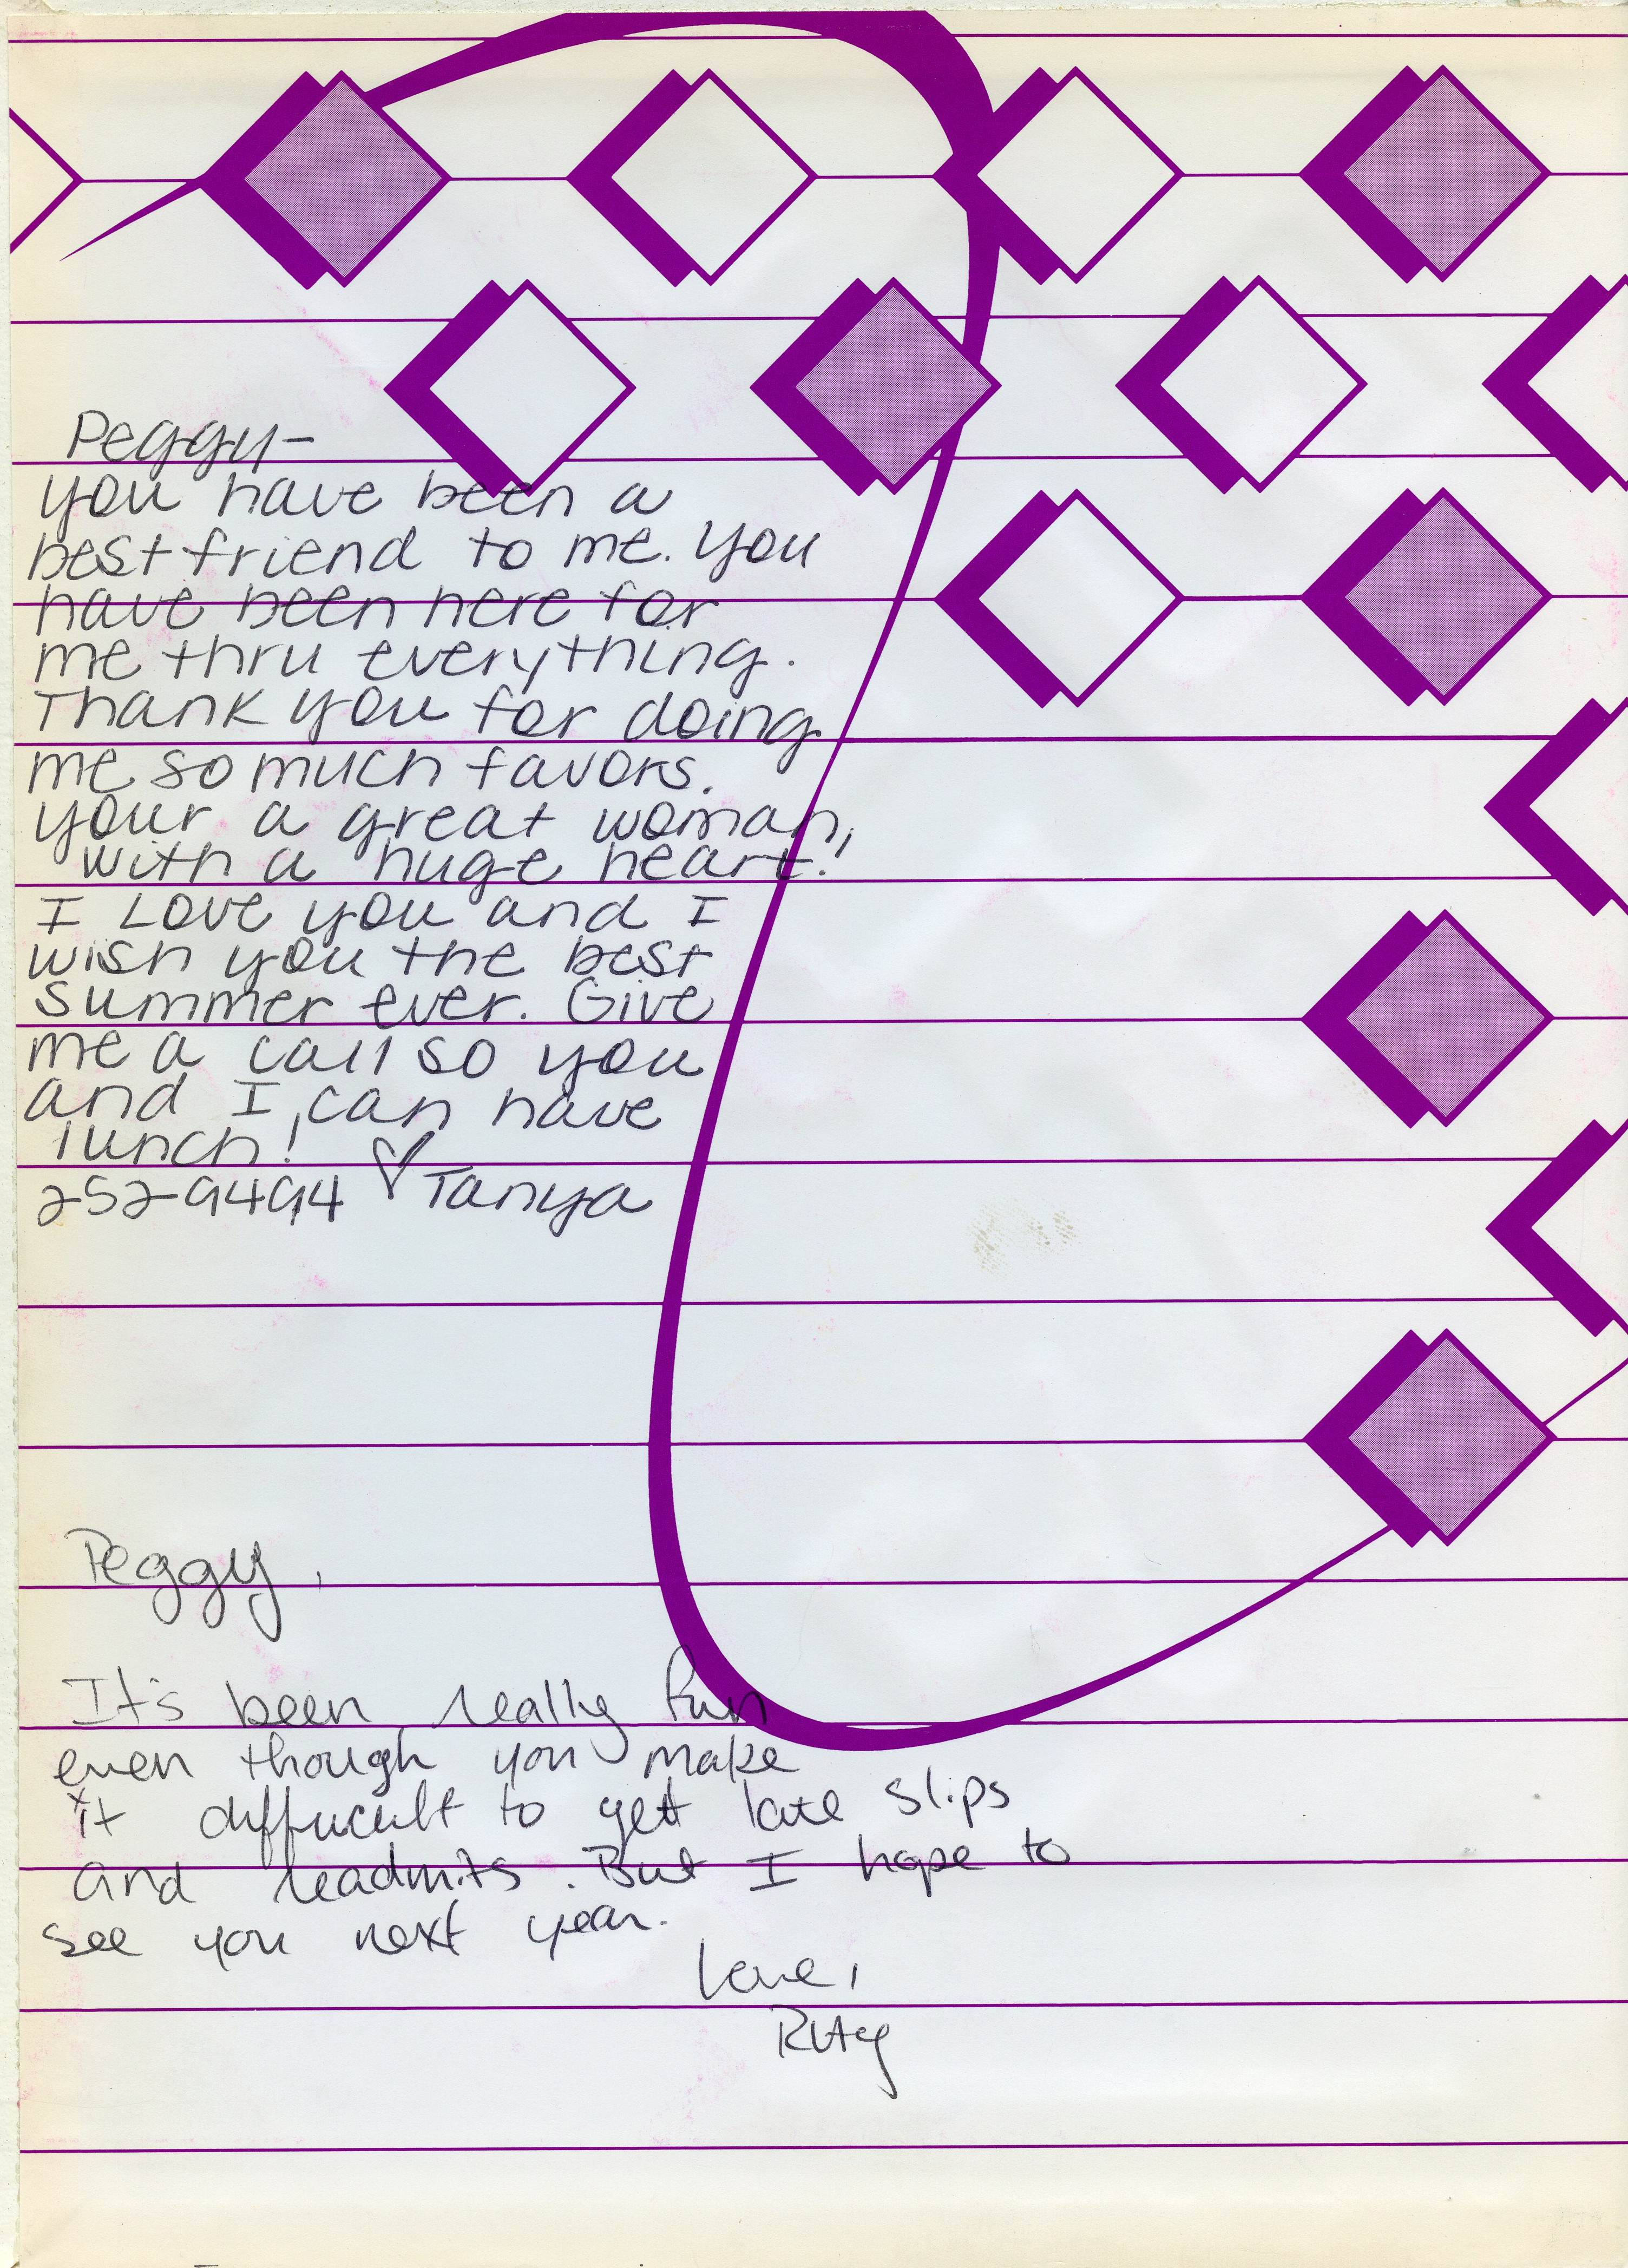 Peggy-
you have been a
best friend to me. You
have been here for
me thru everything.
Thank you for doing
me so much favors.
your a great woman,
with a huge heart!
I Love you and I
wish you the best
summer ever. Give
me a call so you
and I can have
lunch!
252-9494 ♡ Tanya
Peggy,
It's been really fun
even though you make
it diffucult to get late slips
and readmits. But I hope to
see you next year.
Love,